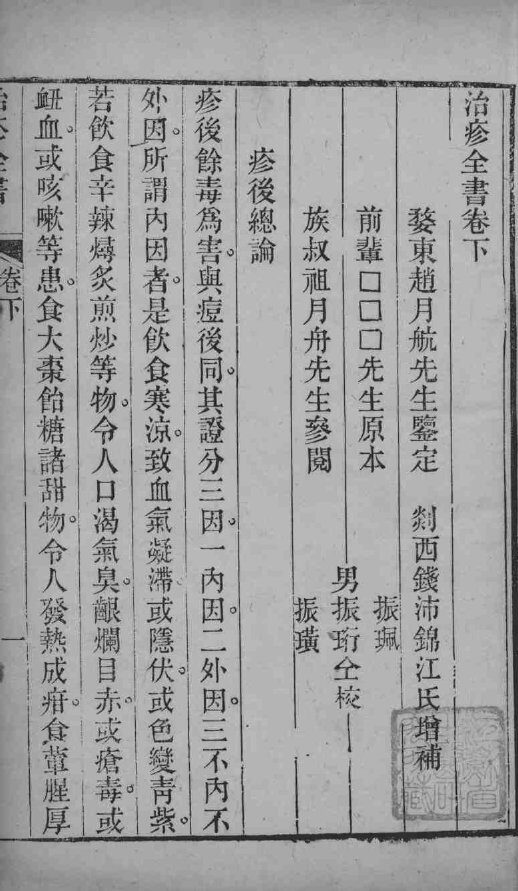 治疹全書卷下
婺東趙月航先生鑒定 剡西錢沛錦江氏增補
前輩□□□先生原本 振珮
男振珩仝校
族叔祖月舟先生參閱 振璜
疹後總論
疹後餘毒爲害。與痘後同。其證分三因。一內因。二外因。三不內不
外因。所謂內因者。是飲食寒涼。致血氣凝滯。或隱伏。或色變青紫。
若飲食辛辣燖炙煎炒等物。令人口渴氣臭。齦爛目赤。或瘡毒。或
衄血。或咳嗽等患。食大棗飴糖諸甜物。令人發熱成疳。食葷腥厚
治疹全書 卷下 一